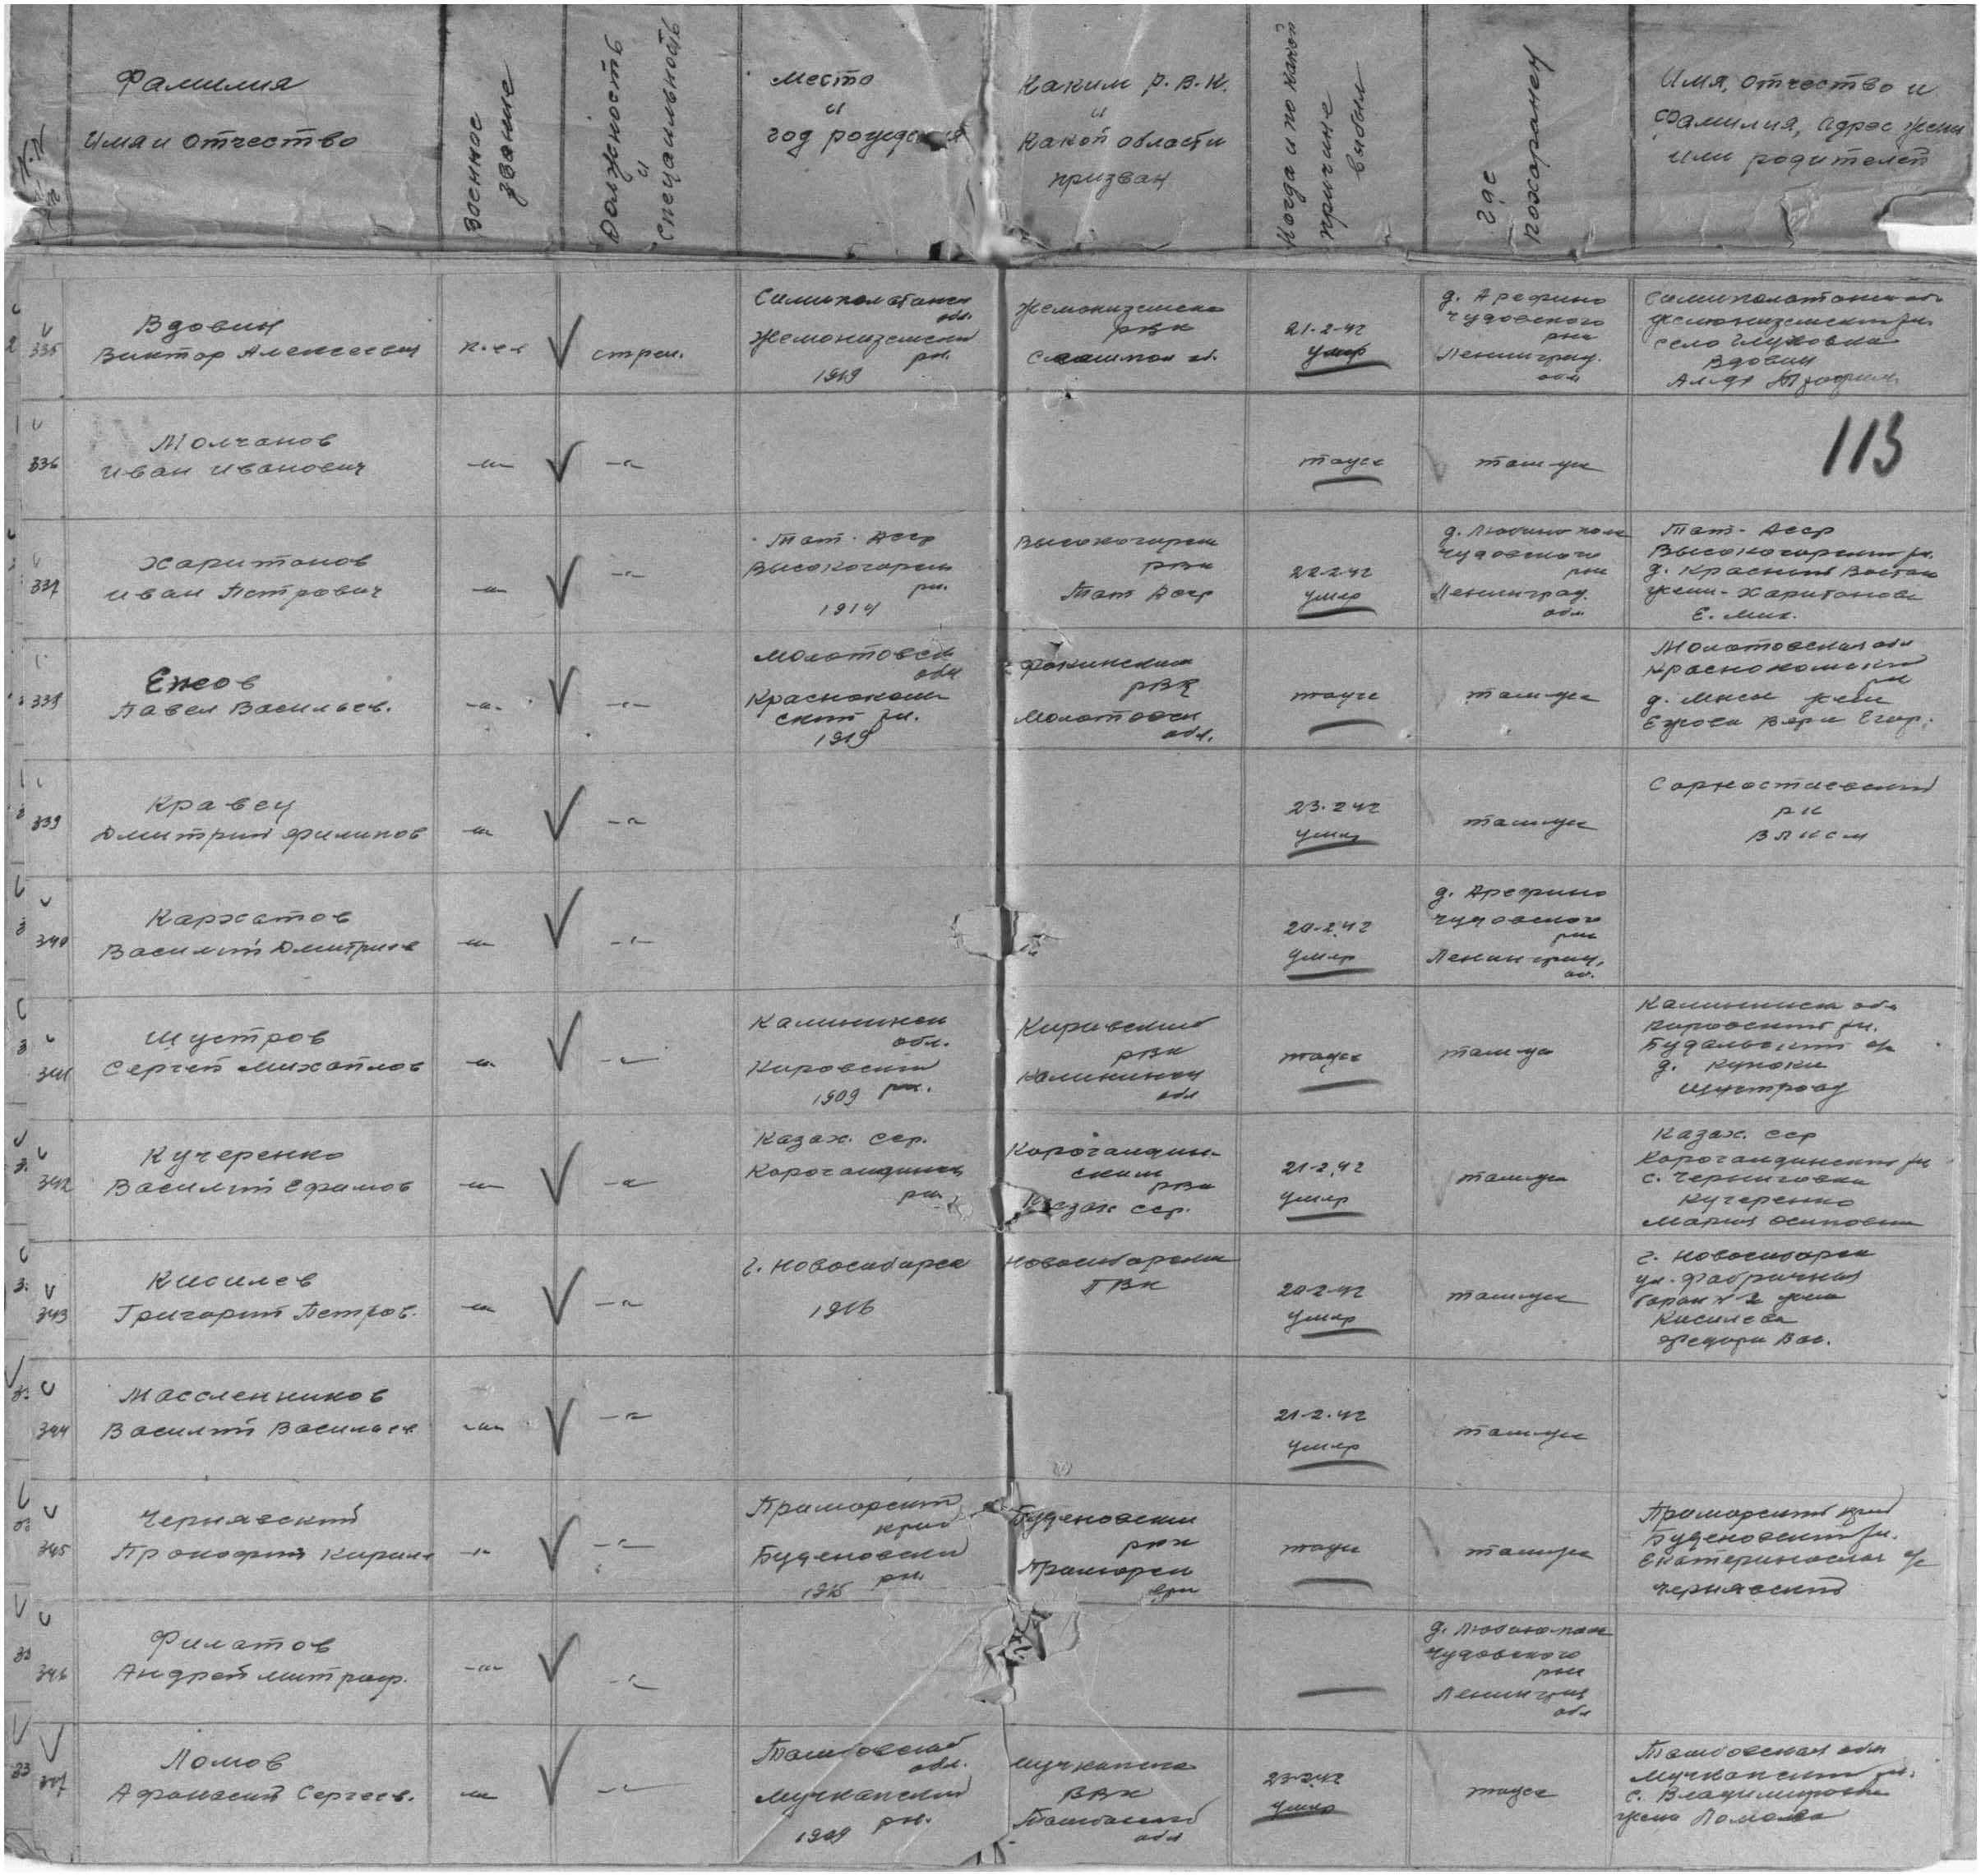 Фамилия
Имя и Отчество
Военное
звание
Должность
и
специальность
Место
и
год рождения
Каким Р.В.К.
и
какой области
призван
Когда и по какой
причине
выбыл
Где
похоронен
Имя, отчество и
фамилия, адрес жены
или родителей
335
Вдовин
Виктор Алексеевич
стрел.
обл.
рн.
1919
РВК
21-2-42
умер
д. Арефино
Чудовского
рна
Ленинград.
обл
село Глуховка
Вдовин
113
336
Молчанов
Иван Иванович
-"-
-"-
тоуже
там-же
337
Харитонов
Иван Петрович
-"-
-"-
Тат. Асср
Высокогорск
рн.
1914
Высокогорск
РВК
Тат Асср
22-2-42
умер
д. Любино поле
Чудовского
рна
Ленинград.
обл
Тат. Асср
Высокогорский рн.
д. Красный Восток
жена - Харитонова
Е. Мих.
338
Ежов
Павел Васильев.
-"-
-"-
Молотовск
обл
Краснокам-
ский рн.
1919
Фокинским
РВК
Молотовск
обл.
тоуже
там-же
Молотовская обл
Краснокамский
рн
д. Мысы жена
Ежова Вера Егор.
339
Кравец
Дмитрий Филипов
-"-
-"-
23-2-42
умер
там-же
рк
ВЛКСМ
340
Василий Дмитриев
-"-
-"-
20-2-42
умер
д. Арефино
Чудовского
рна
Ленинград.
об.
341
Шустров
Сергей Михайлов
-"-
-"-
Калининск
обл.
Кировский
рн.
1909
Кировский
РВК
Калининск
обл
тоуже
там-же
Калининск обл
Кировский рн.
д.
342
Кучеренко
Василий Ефимов
-"-
-"-
Казах. сср.
Корогандинск
рн.
Корогандин-
ским
РВК
Казах сср.
21-2-42
умер
там-же
Казах. сср
Корогандинский рн
с. Черниговка
Кучеренко
Мария Осиповна
343
Кисилев
Григорий Петров.
-"-
-"-
г. Новосибирск
1916
Новосибирским
ГВК
20-2-42
умер
там-же
г. Новосибирск
ул. Фабричная
барак № 2 жена
Кисилева
Федора Вас.
344
Массленников
Василий Васильев
-"-
-"-
21-2-42
умер
там-же
345
Чернявский
Прокофий Кирил.
-"-
-"-
Приморский
край
Буденовский
рн.
Буденовским
РВК
Приморск
края
тоуже
там-же
Приморский край
Буденовский рн.
Екатеринослав с/с
Чернявский
346
Филатов
Андрей Митроф.
-"-
-"-
д. Любино-поле
Чудовского
рна
Ленинград
обл
347
Ломов
Афонасий Сергеев.
-"-
-"-
Тамбовской
обл.
Мучкапский
рн.
1909
Мучкапск
РВК
Тамбовской
обл
23-2-42
умер
тоуже
Тамбовская обл
Мучкапский рн.
с. Владимировка
жена Ломова